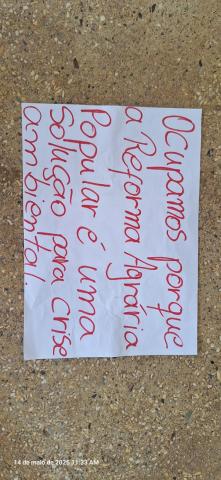 Ocupamos porque
a Reforma Agrária
Popular é uma
solução para crise
ambiental.
14 de maio de 2025 11:33 AM